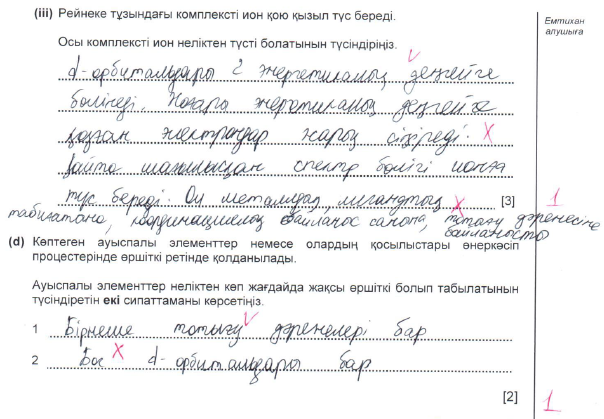 (iii) Рейнеке тұзындағы комплексті ион қою қызыл түс береді.
Емтихан алушыға
Осы комплексті ион неліктен түсті болатынын түсіндіріңіз.
d-орбитальдары 2 энергетикалық деңгейге
бөлінеді. Жоғары энергетикалық деңгейге
қозған электрондар жарық сіңіреді.
қайта шағылысқан спектр бөлігі ионға
түс береді. Ол металдың, лигандтың [3] 1
табиғатына, координациялық байланыс санына, тотығу дәрежесіне
байланысты
(d) Көптеген ауыспалы элементтер немесе олардың қосылыстары өнеркәсіп
процестерінде өршіткі ретінде қолданылады.
Ауыспалы элементтер неліктен көп жағдайда жақсы өршіткі болып табылатынын
түсіндіретін екі сипаттаманы көрсетіңіз.
1 Бірнеше тотығу дәрежелері бар
2 Бос d-орбитальдары бар
[2] 1